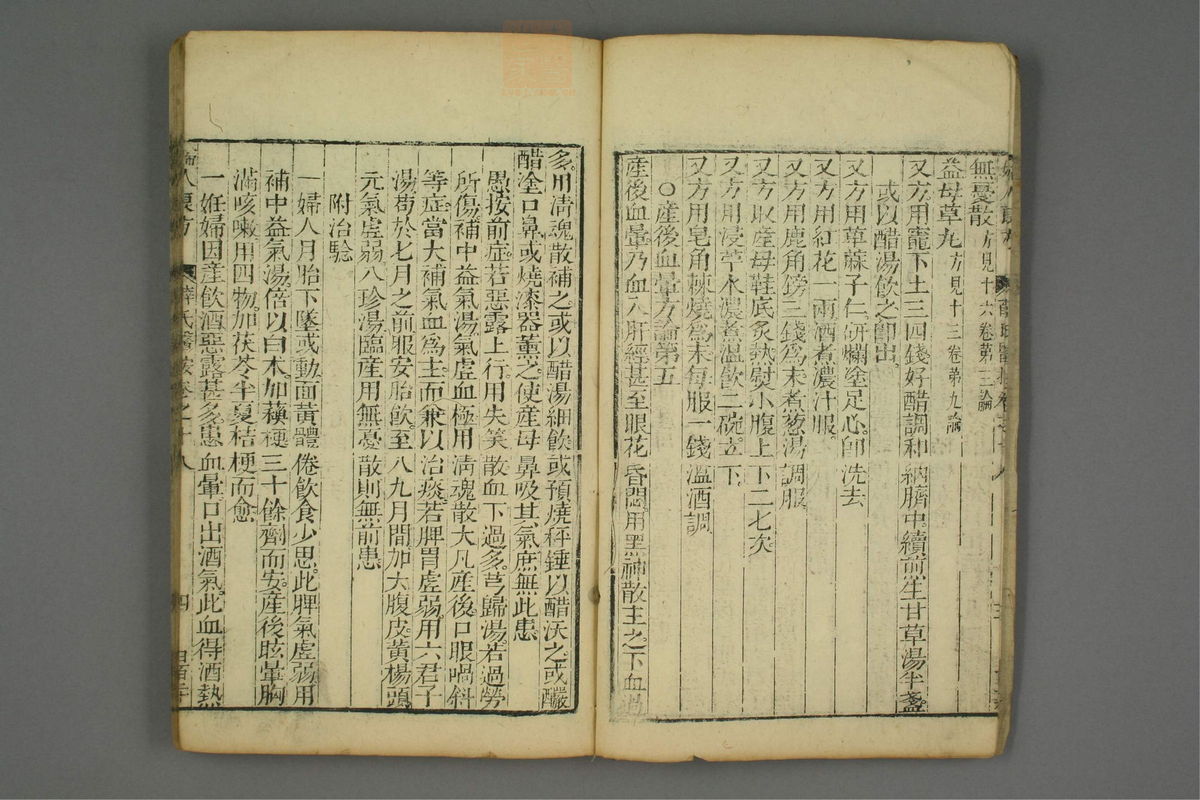 無憂散方見十六卷第二論
益母草丸方見十三卷第九論
又方用竈下土三四錢好醋調和納臍中續前生甘草湯半盞
或以醋湯飲之即出
又方用萆蔴子仁研爛塗足心即洗去
又方用紅花一兩酒煮濃汁服
又方用鹿角鎊三錢爲末煮葱湯調服
又方取産母鞋底炙熱熨小腹上下二七次
又方用浸苧水濃煮温飲二碗立下
又方用皂角棘燒爲末每服一錢溫酒調
○産後血暈方論第五
産後血暈乃血入肝經甚至眼花昏悶用黑神散主之下血過
多用清魂散補之或以醋湯細飲或預燒秤錘以醋沃之或釅
醋塗口鼻或燒漆器薰之使産母鼻吸其氣庶無此患
愚按前症若惡露上行用失笑散血下過多芎歸湯若過勞
所傷補中益氣湯氣虛血極用清魂散大凡産後口眼喎斜
等症當大補氣血爲主而兼以治痰若脾胃虛弱用六君子
湯芎於七月之前服安胎飲至八九月間加大腹皮黃楊頭
元氣虛弱八珍湯臨産用無憂散則無前患
附治驗
一婦八月胎下墜或動面黃體倦飲食少思此脾氣虛弱用
補中益氣湯倍以白术加蘓梗三十餘劑而安産後眩暈胸
滿咳嗽用四物加茯苓半夏桔梗而愈
一姙婦因産飲酒惡露甚多患血暈口出酒氣此血得酒熱
婦人良方
薛氏醫按卷之十八
四